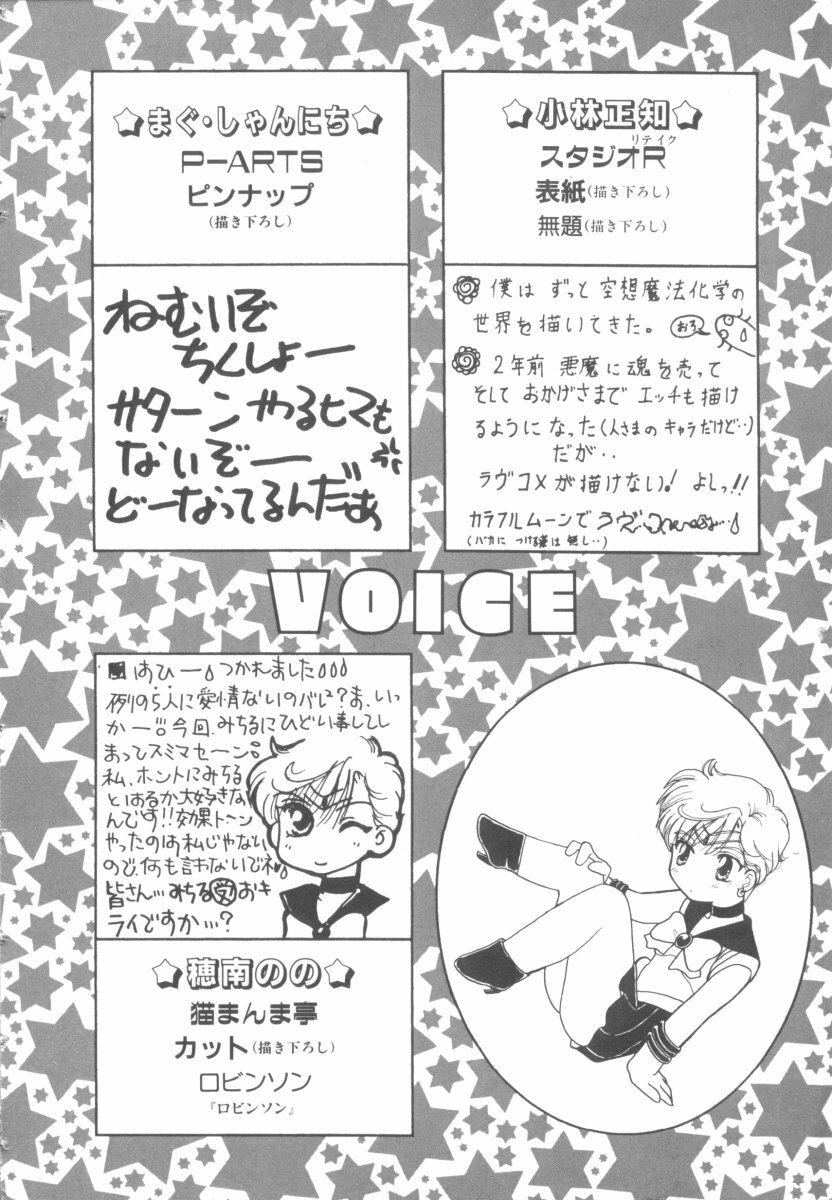 ☆小林正知☆
スタジオR
リテイク
表紙(描き下ろし)
無題(描き下ろし)
僕は ずっと 空想魔法化学の
世界を描いてきた。
おろ〜
2年前 悪魔に魂を売って
そして おかげさまで エッチも描け
るように なった(人さまの キャラだけど‥)
だが‥
ラヴコメが描けない! よしっ!!
カラフルムーンで
(バカに つける薬は 無し‥)
☆まぐ・しゃんにち☆
P-ARTS
ピンナップ
(描き下ろし)
ねむいぞ
ちくしょー
サターンやるヒマも
ないぞー
どーなってるんだぁ
VOICE
はひー つかれました
例の5人に愛情ないのバレ?ま、いっ
かー!!今回、みちるにひどい事してし
まってスミマセーン
私、ホントにみちる
とはるか大好きな
んです!!効果トーン
やったのは私じゃない
ので、何も言わないでネ
皆さん…みちる受おキ
ライですか…?
☆穂南のの☆
猫まんま亭
カット(描き下ろし)
ロビンソン
『ロビンソン』